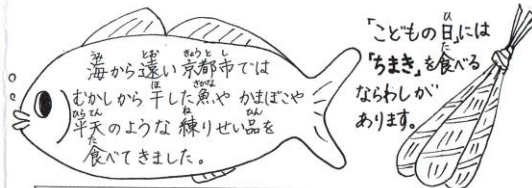 海から遠い京都市では
むかしから干した魚や かまぼこや
平天のような練りせい品を
食べてきました。
「こどもの日」には
「ちまき」を食べる
ならわしが
あります。